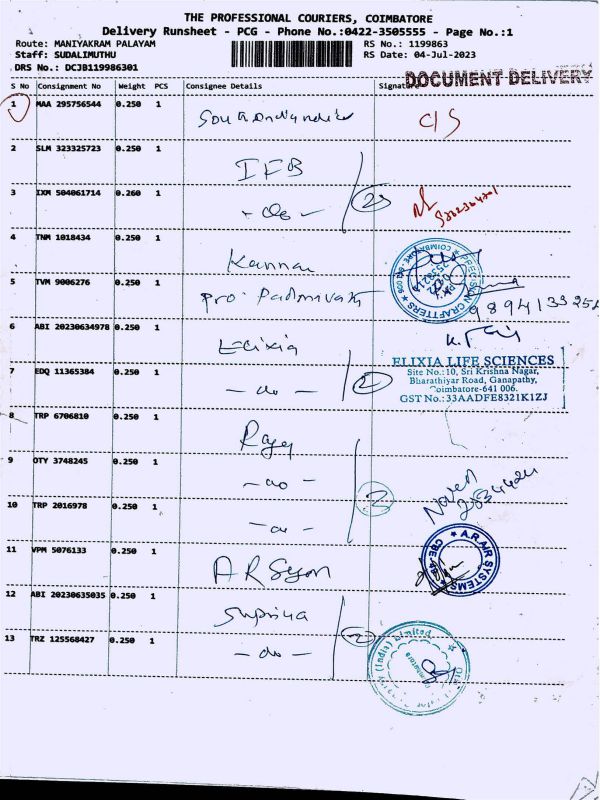 THE PROFESSIONAL COURIERS, COIMBATORE
Delivery Runsheet - PCG - Phone No.:0422-3505555 - Page No.:1
Route: MANIYAKRAM PALAYAM RS No.: 1199863
Staff: SUDALIMUTHU RS Date: 04-Jul-2023
DRS No.: DCJB119986301
DOCUMENT DELIVERY
S No Consignment No Weight PCS Consignee Details Signature
1 MAA 295756544 0.250 1
2 SLM 323325723 0.250 1 IFB
3 IXM 504061714 0.260 1 - do -
4 TNM 1018434 0.250 1 Kannan
5 TVM 9006276 0.250 1
6 ABI 20230634978 0.250 1 Elixia
ELIXIA LIFE SCIENCES
7 EDQ 11365384 0.250 1 - do - 2
Site No.:10, Sri Krishna Nagar,
Bharathiyar Road, Ganapathy,
Coimbatore-641 006.
GST No.:33AADFE8321K1ZJ
8 TRP 6706810 0.250 1
9 OTY 3748245 0.250 1 - do -
10 TRP 2016978 0.250 1 - do -
3
Naveen
11 VPM 5076133 0.250 1
A.R.AIR SYSTEMS
12 ABI 20230635035 0.250 1 Supriya
13 TRZ 125568427 0.250 1 - do - 2
(India) Limited